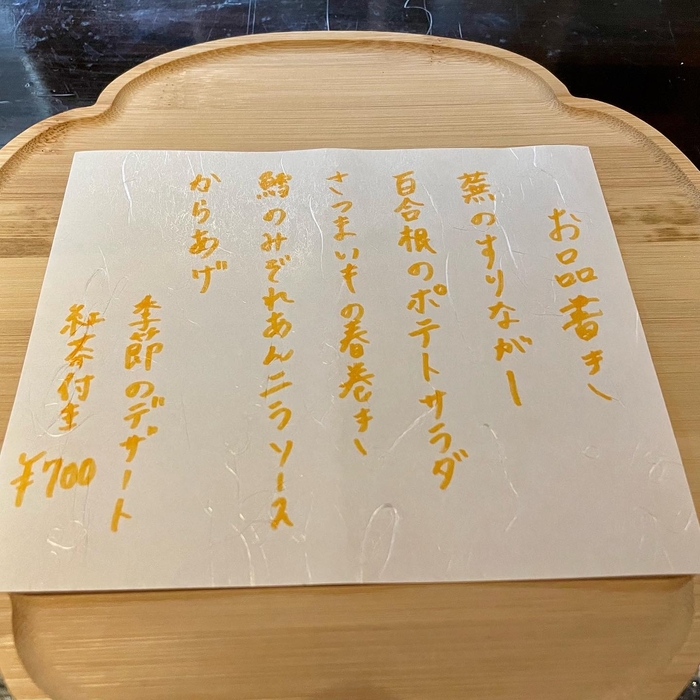 お品書き
蕪のすりながし
百合根のポテトサラダ
さつまいもの春巻き
鱈のみぞれあんニラソース
からあげ
季節のデザート
紅茶付き
¥700